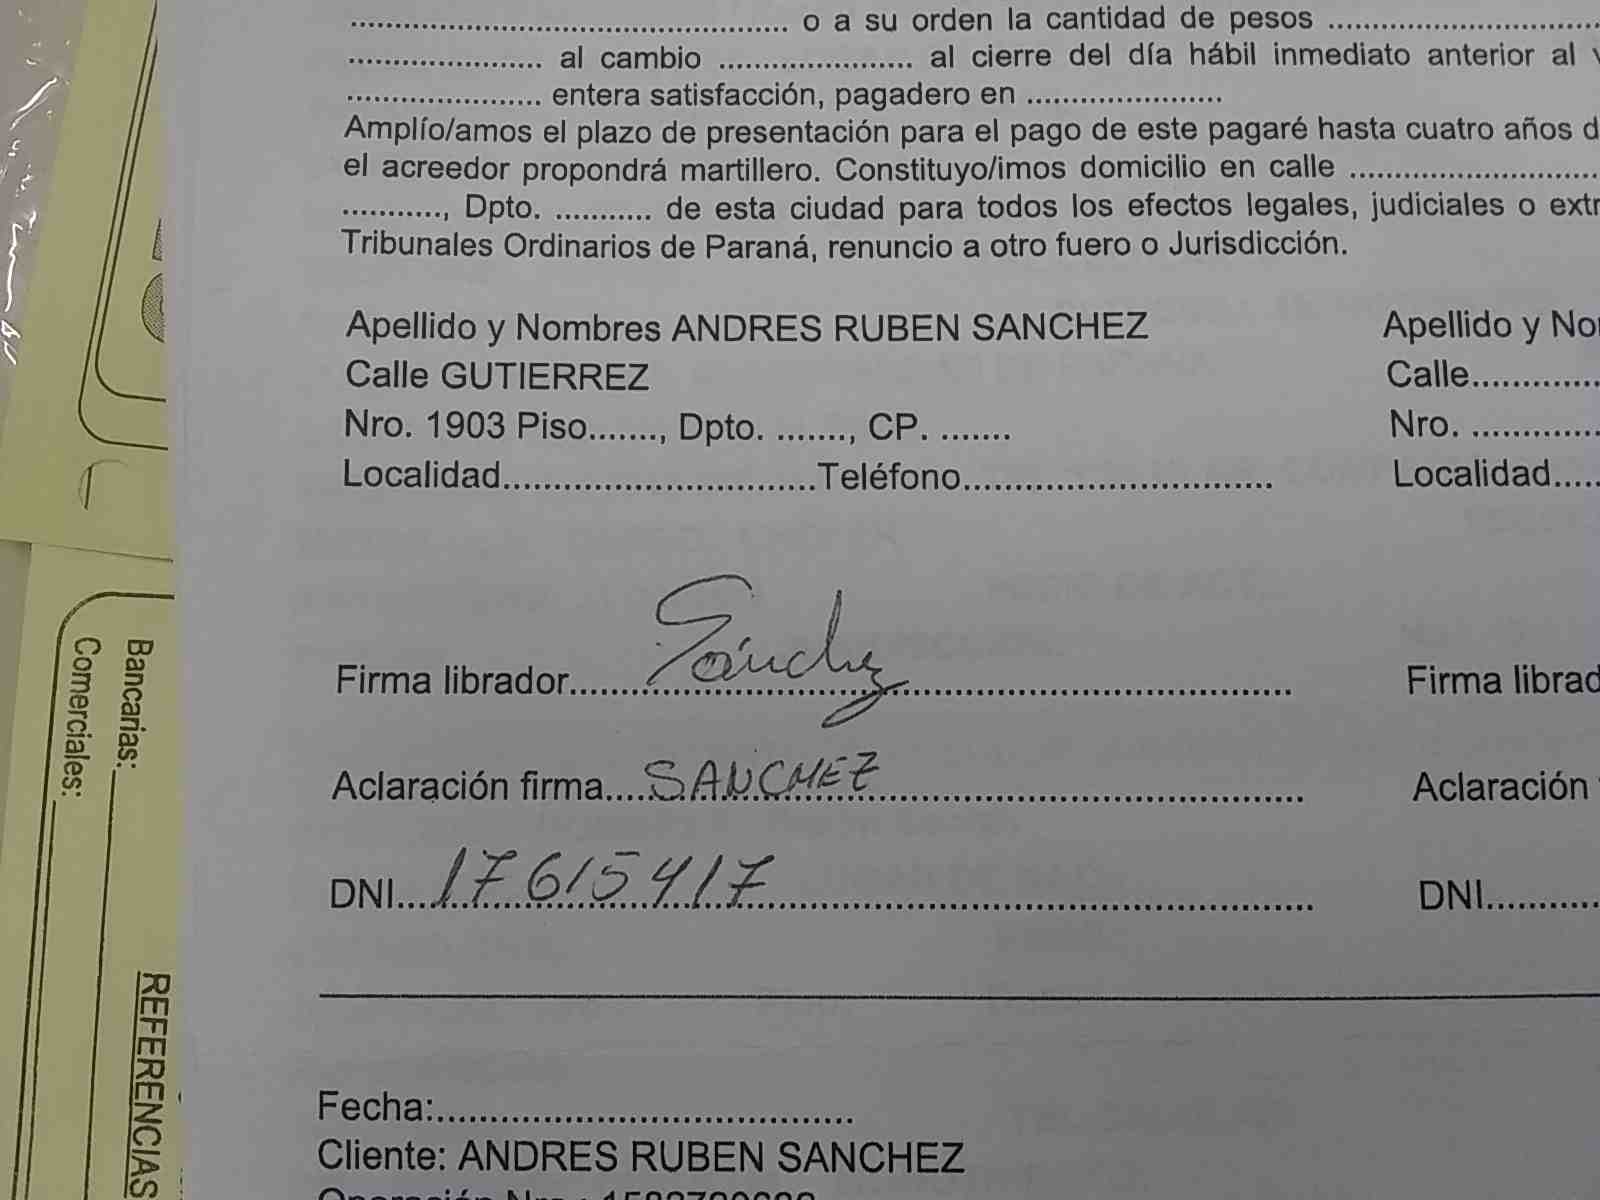 ............................................ o a su orden la cantidad de pesos ............................
...................... al cambio ...................... al cierre del día hábil inmediato anterior al
...................... entera satisfacción, pagadero en ......................
Amplío/amos el plazo de presentación para el pago de este pagaré hasta cuatro años d
el acreedor propondrá martillero. Constituyo/imos domicilio en calle ............................
..........., Dpto. ........... de esta ciudad para todos los efectos legales, judiciales o extr
Tribunales Ordinarios de Paraná, renuncio a otro fuero o Jurisdicción.
Apellido y Nombres ANDRES RUBEN SANCHEZ
Calle GUTIERREZ
Nro. 1903 Piso......., Dpto. ......., CP. .......
Localidad..............................Teléfono..............................
Apellido y No
Calle.............
Nro. .............
Localidad.....
Firma librador......Sánchez......
Aclaración firma....SANCHEZ......
DNI....17615417......
Firma librad
Aclaración
DNI...........
Fecha:........................................
Cliente: ANDRES RUBEN SANCHEZ
Bancarias:
Comerciales:
REFERENCIAS